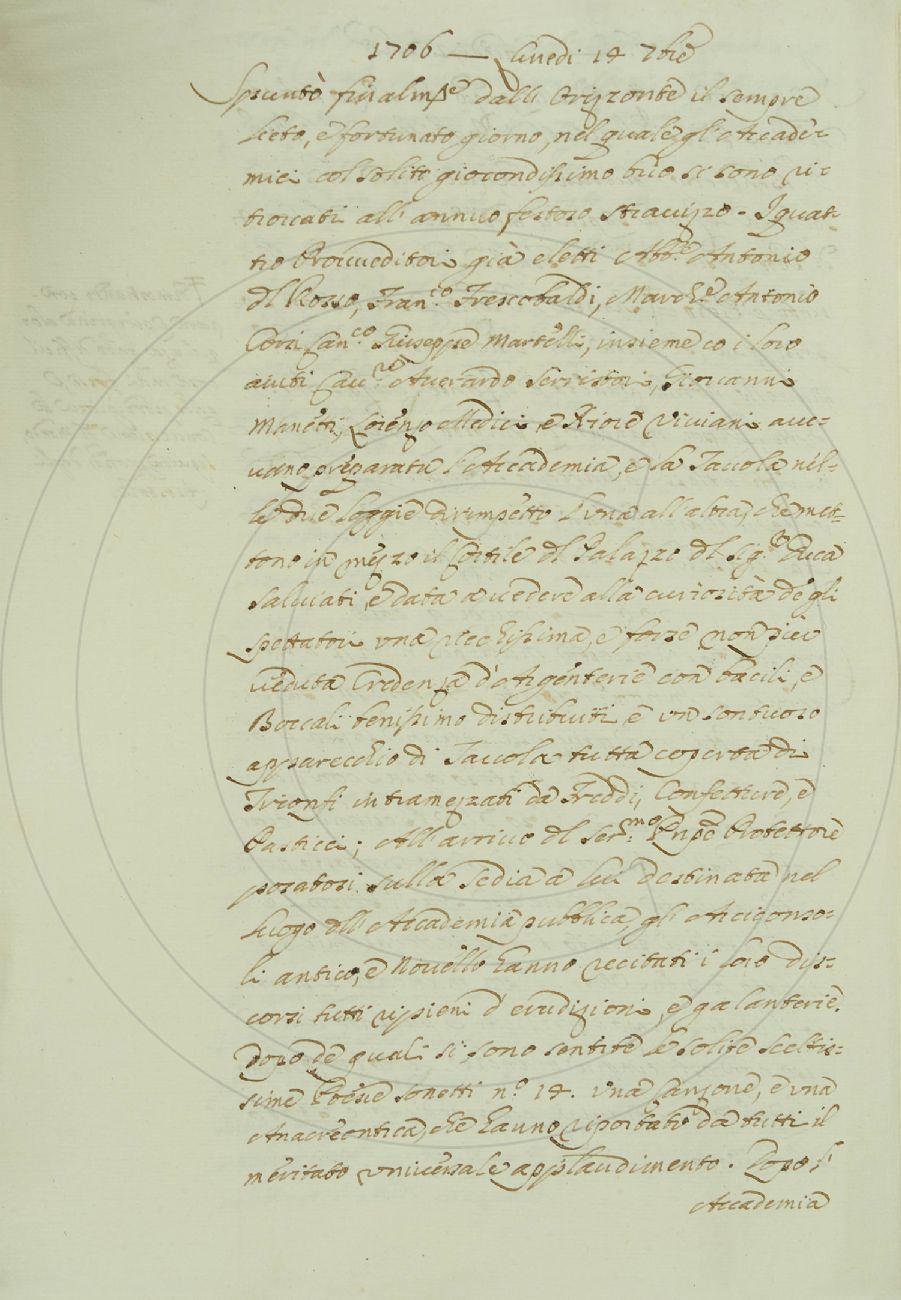 1706 — Lunedi 14 7bre
Spuntò finalmte dall' Orizzonte il sempre
lieto, e fortunato giorno, nel quale gl' Accade-
mici col solito giocondissimo brio si sono ri-
trovati all' annuo festoso stravizzo. I quat-
tro Provveditori già eletti Abbe Antonio
del Rosso, Franco Frescobaldi, Marche Antonio
Corsi, Canco Giuseppe Martelli, insieme co i loro
aiuti Cavre Averardo Serristori, Giovanni
Manetti, Lorenzo Medici, e Fiore Viviani ave-
vano preparata l'Accademia, e la Tavola nel-
le due loggie dirimpetto l'una all' altra, che met-
tono in mezzo il Cortile del Palazzo del Sigre Duca
Salviati, e data a vedere alla curiosità degli
spettatori una ricchissima, e forse non più
veduta Credenza d'Argenterie con bacili, e
Boccali benissimo distribuiti, e un sontuoso
apparecchio di Tavola tutta coperta di
Trionfi intramezzati da Freddi, Confetture, e
Pasticci; All' arrivo del Sermo Prnpe Protettore
posatosi sulla sedia a lui destinata nel
luogo dell' Accademia pubblica, gl' Arciconso-
li antico, e Novello hanno recitati i loro dis-
corsi tutti ripieni d' erudizioni, e galanterie.
Dopo de quali si sono sentite le solite sceltis-
sime Poesie sonetti n.° 14. una Canzone, e una
Anacreontica, che hanno riportato da tutti il
meritato universale applaudimento. Dopo l'
Accademia